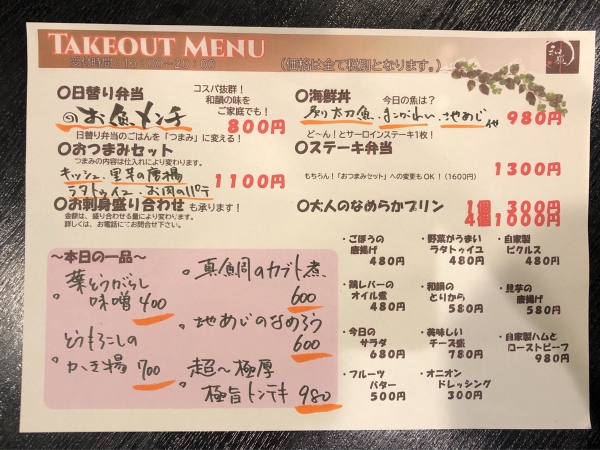 TAKEOUT MENU
(価格は全て税別となります。)
〇日替り弁当
コスパ抜群!
和鍋の味を
ご家庭でも!
お魚メンチ
800円
日替り弁当のごはんを「つまみ」に変える!
〇おつまみセット
つまみの内容は仕入れにより変わります。
キッシュ、里芋の唐揚
ラタトゥイユ、お肉のパテ
1100円
〇お刺身盛り合わせ も承ります!
金額は、盛り合わせる量により変わります。
詳しくは、お電話にてお問合せ下さい。
〇海鮮丼
今日の魚は?
炙り太刀魚、まこがれい、地あじ 他
980円
ど~ん!とサーロインステーキ1枚!
〇ステーキ弁当
1300円
もちろん!「おつまみセット」への変更もOK!(1600円)
〇大人のなめらかプリン
1個 300円
4個1000円
~本日の一品~
葉とうがらし
味噌 400
とうもろこしの
かき揚 700
真鯛のカブト煮
600
地あじのなめろう
600
超~極厚
極旨トンテキ 980
・ごぼうの
唐揚げ
480円
・野菜がうまい
ラタトゥイユ
480円
・自家製
ピクルス
480円
・鶏レバーの
オイル煮
480円
・和鍋の
とりから
580円
・里芋の
唐揚げ
580円
・今日の
サラダ
680円
・美味しい
チーズ盛
780円
・自家製ハムと
ローストビーフ
980円
・フルーツ
バター
500円
・オニオン
ドレッシング
300円